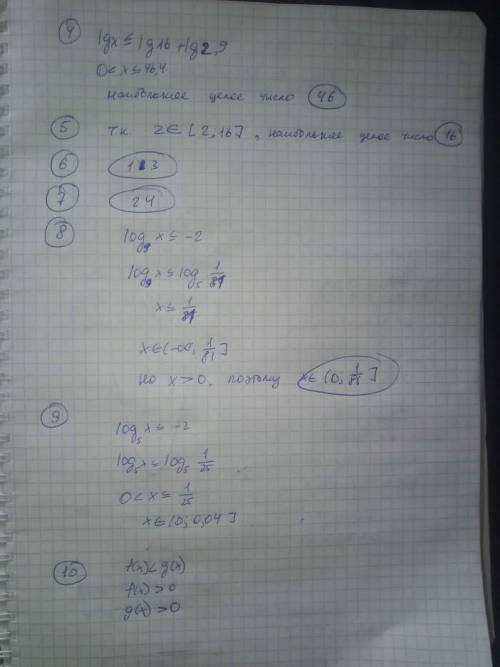 4
lgx ≤ lg16 + lg2,9
0 < x ≤ 46,4
наибольшее целое число 46
5 тк z ∈ [2,16], наибольшее целое число 16
6 13
7 24
8
log₉ x ≤ -2
log₉ x ≤ log₅ 1/81
x ≤ 1/81
x ∈ (-∞; 1/81]
но x > 0, поэтому x ∈ (0; 1/81]
9
log₅ x ≤ -2
log₅ x ≤ log₅ 1/25
0 < x ≤ 1/25
x ∈ (0; 0,04]
10
f(x) < g(x)
f(x) > 0
g(x) > 0